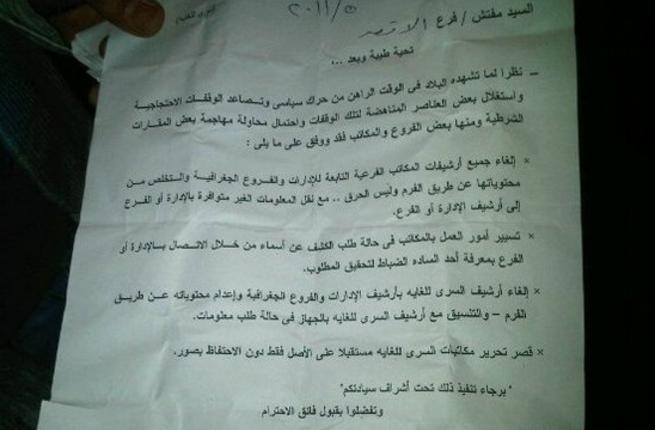 السيد مفتش / فرع الاقصر
٢٠١١/٥
تحية طيبة وبعد ...
– نظرا لما تشهده البلاد فى الوقت الراهن من حراك سياسى وتصاعد الوقفات الاحتجاجية
واستغلال بعض العناصر المناهضة لتلك الوقفات واحتمال محاولة مهاجمة بعض المقارات
الشرطية ومنها بعض الفروع والمكاتب فقد ووفق على ما يلى :
× إلغاء جميع أرشيفات المكاتب الفرعية التابعة للإدارات والفروع الجغرافية والتخلص من
محتوياتها عن طريق الفرم وليس الحرق .. مع نقل المعلومات الغير متوافرة بالإدارة أو الفرع
إلى أرشيف الإدارة أو الفرع.
× تسيير أمور العمل بالمكاتب فى حالة طلب الكشف عن أسماء من خلال الاتصال بالإدارة أو
الفرع بمعرفة أحد الساده الضباط لتحقيق المطلوب.
× إلغاء أرشيف السرى للغايه بأرشيف الإدارات والفروع الجغرافية وإعدام محتوياته عن طريق
الفرم – والتنسيق مع أرشيف السرى للغايه بالجهاز فى حالة طلب معلومات.
× قصر تحرير مكاتبات السرى للغايه مستقبلا على الأصل فقط دون الاحتفاظ بصور.
" برجاء تنفيذ ذلك تحت أشراف سيادتكم"
وتفضلوا بقبول فائق الاحترام